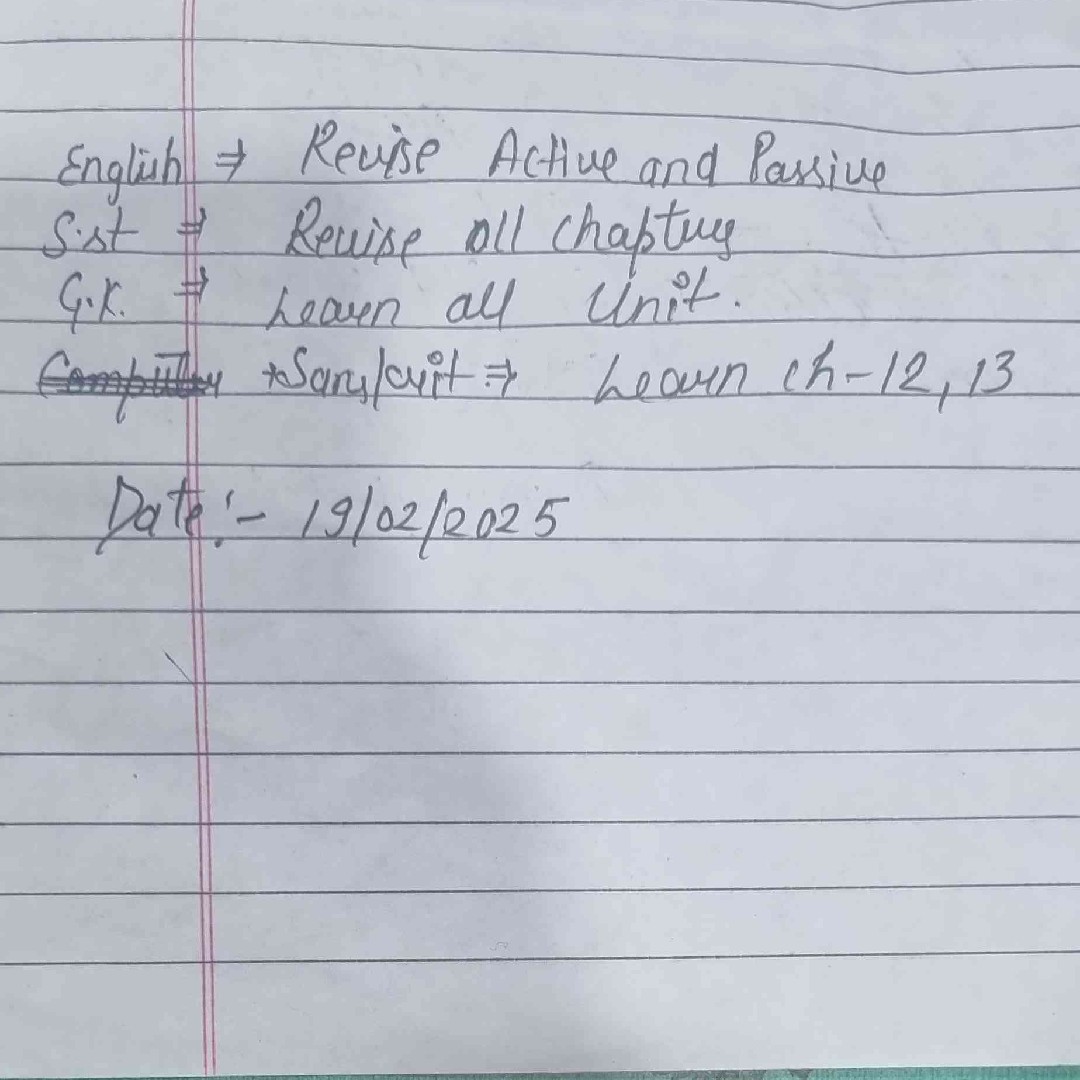 English ⇒ Revise Active and Passive
S.st ⇒ Revise all chapters
G.K. ⇒ Learn all Unit.
Computer *Sanskrit ⇒ Learn ch-12, 13
Date:- 19/02/2025